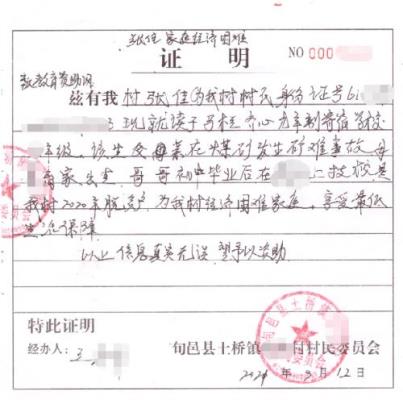 张佳家庭经济困难
证 明
NO 000
致教育资助网
兹有我村张佳为我村村民身份证号61
现就读于 九年制寄宿学校
年级。该生父亲在煤矿发生矿难事故 母
离家出走 哥哥初中毕业后在 技校 是
我村2020年脱贫户 为我村经济困难家庭 享受最低
生活保障
以上信息真实无误 望予以资助
特此证明
经办人:王
旬邑县土桥镇 村村民委员会
2021 年 3 月 12 日